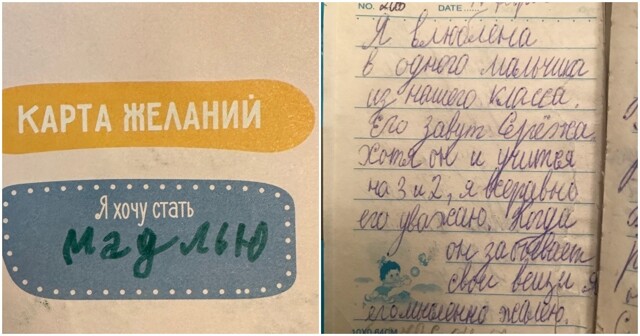 КАРТА ЖЕЛАНИЙ
Я хочу стать
мадлью
NO. 200 DATE
Я влюблена
в одного мальчика
из нашего класса.
Его зовут Серёжа.
Хотя он и учиться
на 3 и 2, я всёравно
его уважаю. Когда
он забывает
свои вещи я
его мысленно жалею.